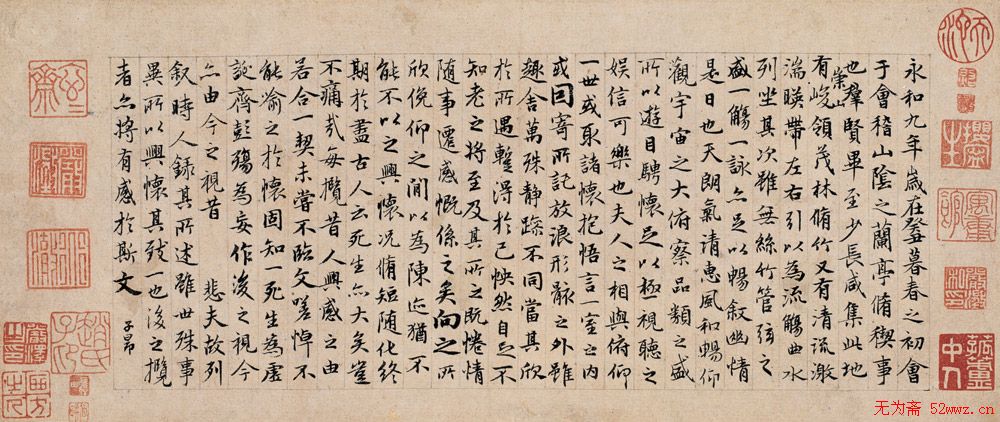 永和九年歲在癸丑暮春之初會
于會稽山陰之蘭亭脩稧事
也羣賢畢至少長咸集此地
有崇山峻領茂林脩竹又有清流激
湍暎帶左右引以為流觴曲水
列坐其次雖無絲竹管弦之
盛一觴一詠亦足以暢敘幽情
是日也天朗氣清惠風和暢仰
觀宇宙之大俯察品類之盛
所以遊目騁懷足以極視聽之
娱信可樂也夫人之相與俯仰
一世或取諸懷抱悟言一室之內
或因寄所託放浪形骸之外雖
趣舍萬殊静躁不同當其欣
於所遇蹔得於己怏然自足不
知老之將至及其所之既惓情
隨事遷感慨係之矣向之所
欣俛仰之閒以為陳迹猶不
能不以之興懷况脩短随化終
期於盡古人云死生亦大矣豈
不痛哉每攬昔人興感之由
若合一契未嘗不臨文嗟悼不
能喻之於懷固知一死生為虛
誕齊彭殤為妄作後之視今
亦由今之視昔 悲夫故列
叙時人録其所述雖世殊事
異所以興懷其致一也後之攬
者亦將有感於斯文
子昂
无为斋 52wwz.cn